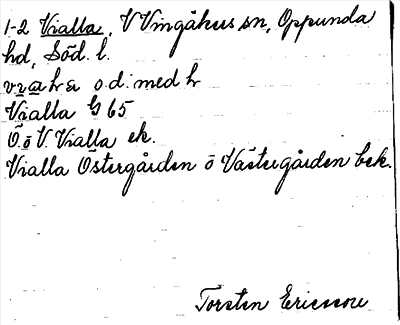 1-2 Vialla, V Vingåker sn, Oppunda
hd, Söd. l.
o.d. med h
Vialla G 65
Ö. o V. Vialla ek.
Vialla Östergården o Västergården bek.
Torsten Ericsson